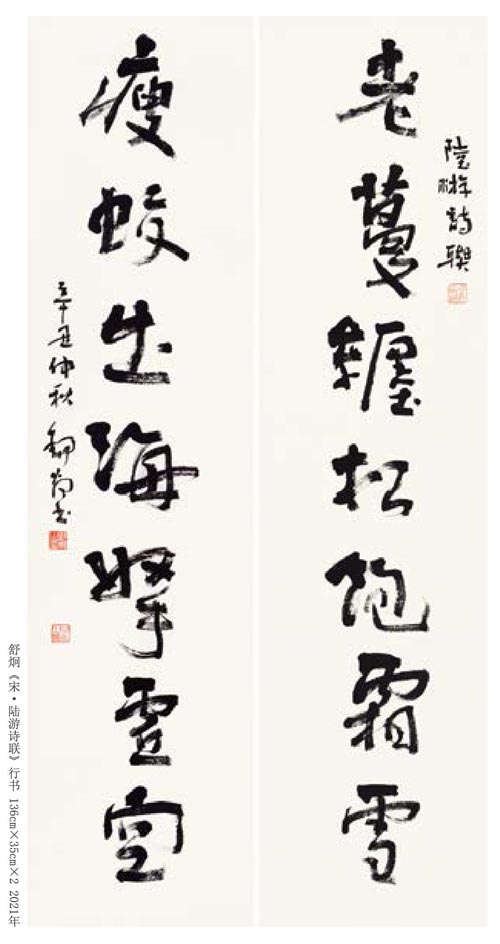 陸游詩聯
老蔓纏松飽霜雪
瘦蛟出海挐虛空
辛丑仲秋 舒炯书
舒炯《宋·陆游诗联》行书 136cm×35cm×2 2021年